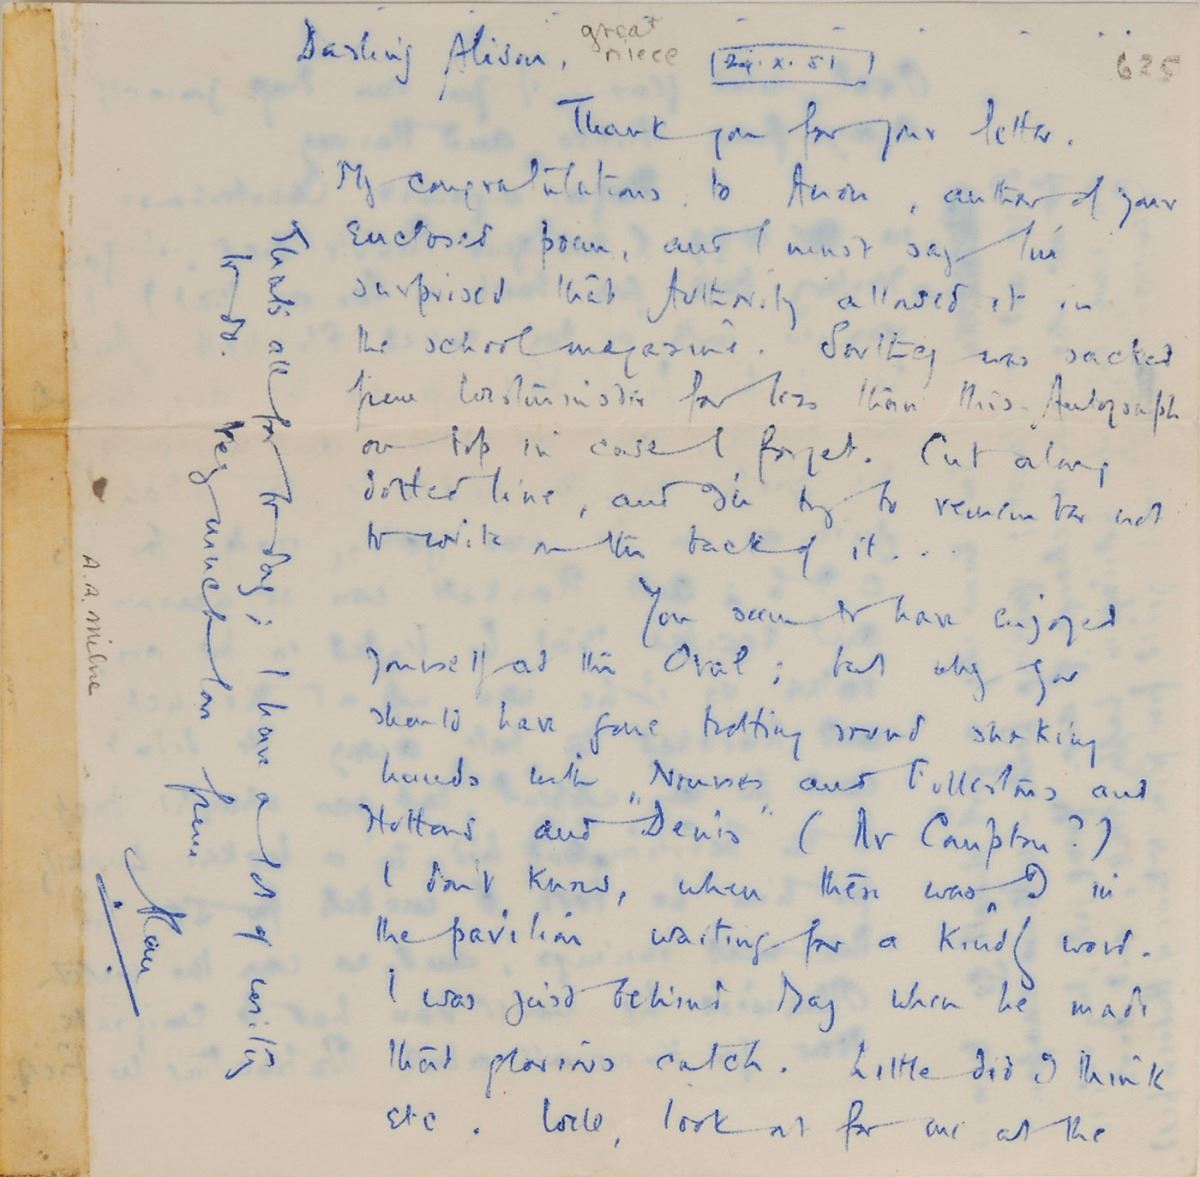 Darling Alison,
great
niece
24.X.51
625
Thank you for your letter.
My congratulations to Anon, author of your
enclosed poem, and I must say I'm
surprised that Authority allowed it in
the school magazine. was sacked
from Westminster for less than this. Autograph
on top in case I forget. Cut along
dotted line, and I'll try to remember not
to write on the back of it..
You seem to have enjoyed
yourself at the Oval; but why you
should have gone trotting round shaking
hands with "Nourses and Fullertons and
Huttons and "Denis" (Mr Compton?)
I don't know, when there was I in
the pavilion waiting for a kindly word.
I was just behind May when he made
that glorious catch. Little did I think
etc. Well, look out for me at the
That's all for to-day; I have a lot of writing
to do.
Very much love from
A.A. Milne